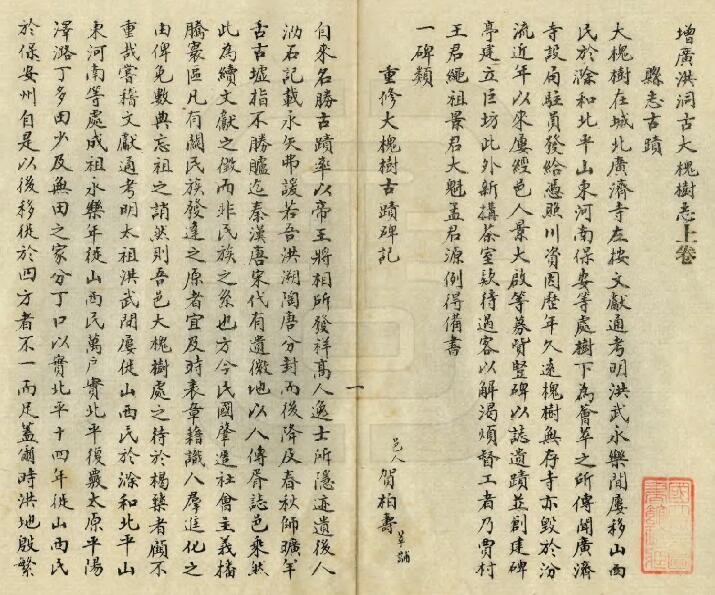 增廣洪洞古大槐樹志上卷
縣志古蹟
大槐樹在城北廣濟寺左按文獻通考明洪武永樂間屢移山西
民於滁和北平山東河南保安等處樹下為會萃之所傳聞廣濟
寺設局駐員發給憑照川資因歷年久遠槐樹無存寺亦毀於汾
流近年以來屢經邑人景大啟等募貲豎碑以誌遺蹟並創建碑
亭建立巨坊此外新構茶室欵待過客以解渴煩督工者乃賈村
王君繩祖景君大魁孟君源例得備書
一碑類
重修大槐樹古蹟碑記
邑人 賀柏壽 草誧
一
自來名勝古蹟率以帝王將相所發祥高人逸士所隱迹遺後人
泐石記載永矢弗諼若吾洪溯陶唐分封而後降及春秋師曠羊
舌古墟指不勝臚迄秦漢唐宋代有遺徽地以人傳胥誌邑乘然
此為續文獻之徵而非民族之系也方今民國肇造社會主義播
騰寰區凡有關民族發達之原者宜及時表章藉識人羣進化之
由俾免數典忘祖之誚然則吾邑大槐樹處之待於楬櫫者顧不
重哉嘗稽文獻通考明太祖洪武間屢徙山西民於滁和北平山
東河南等處成祖永樂年徙山西民萬戶實北平復覈太原平陽
澤潞丁多田少及無田之家分丁口以實北平十四年徙山西民
於保安州自是以後移徙於四方者不一而足蓋爾時洪地殷繁